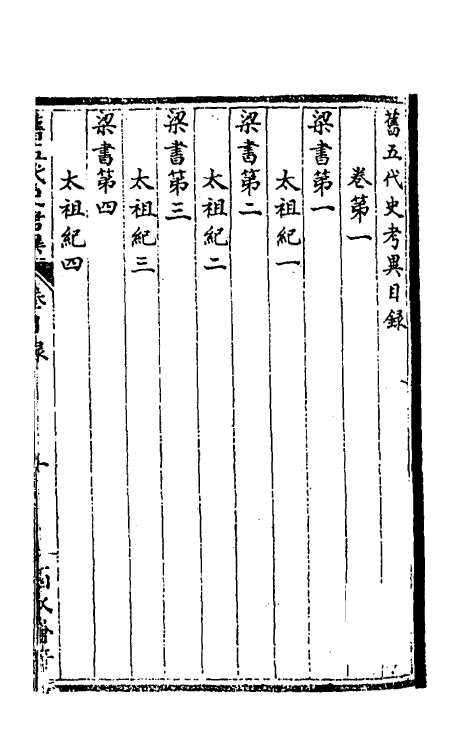 舊五代史考異目録
卷第一
梁書第一
太祖紀一
梁書第二
太祖紀二
梁書第三
太祖紀三
梁書第四
太祖紀四